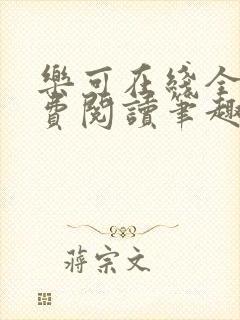 樂可在綫全
費閱讀筆趣
蔣宗文